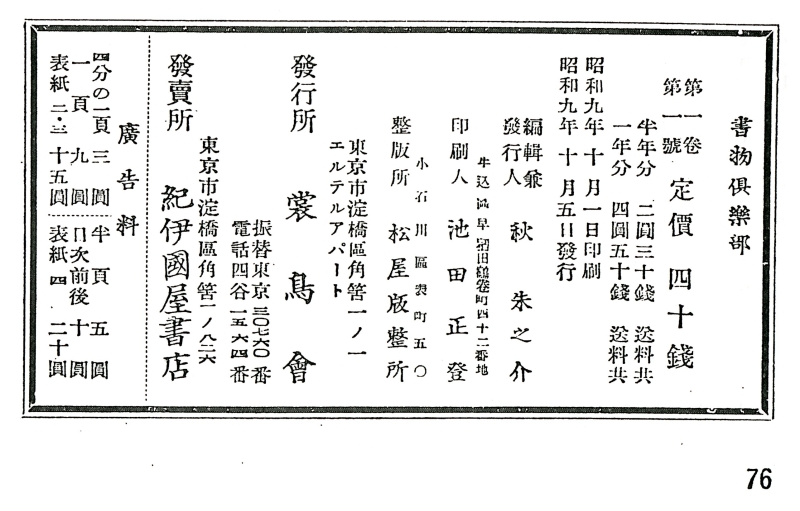 書物倶樂部
第一卷
第一號
定價 四十錢
半年分 二圓三十錢 送料共
一年分 四圓五十錢 送料共
昭和九年十月一日印刷
昭和九年十月五日發行
編輯兼
發行人 秋朱之介
牛込區早稻田鶴卷町四十二番地
印刷人 池田正登
小石川區表町五〇
整版所 松屋版整所
東京市淀橋區角筈一ノ一
エルテルアパート
發行所 裳鳥會
振替東京三〇七六〇番
電話四谷一五六四番
東京市淀橋區角筈一ノ八二六
發賣所 紀伊國屋書店
廣告料
四分の一頁 三圓
一頁 九圓
表紙二・三 十五圓
半頁 五圓
目次前後 十圓
表紙四 二十圓
76